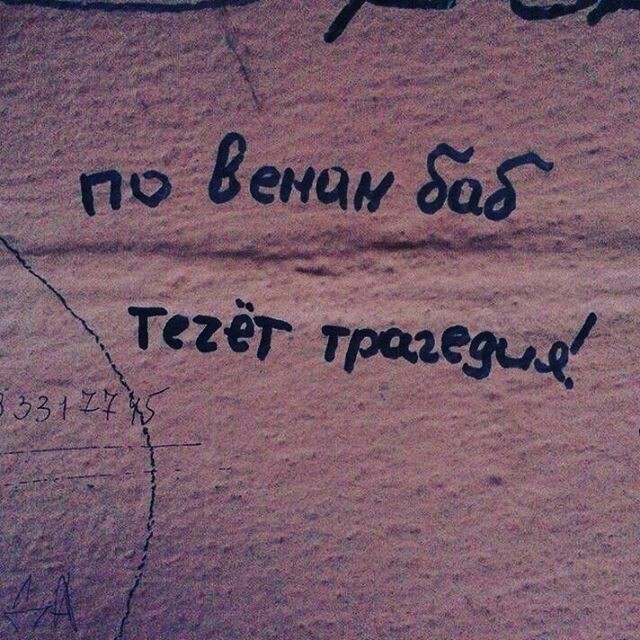 по венам баб
течёт трагедия!
3317745
1-А